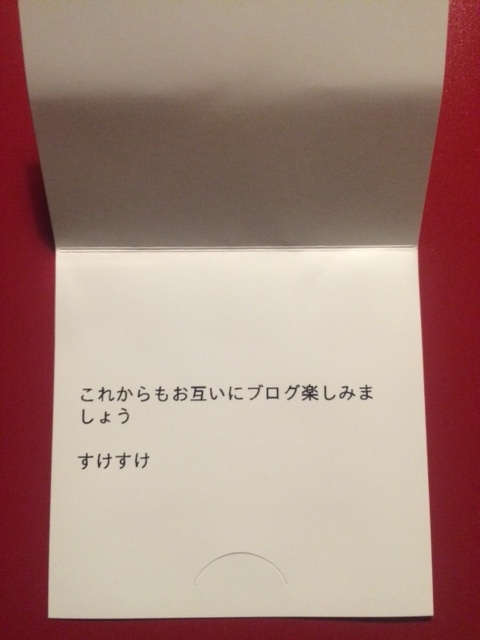 これからもお互いにブログ楽しみま
しょう
すけすけ